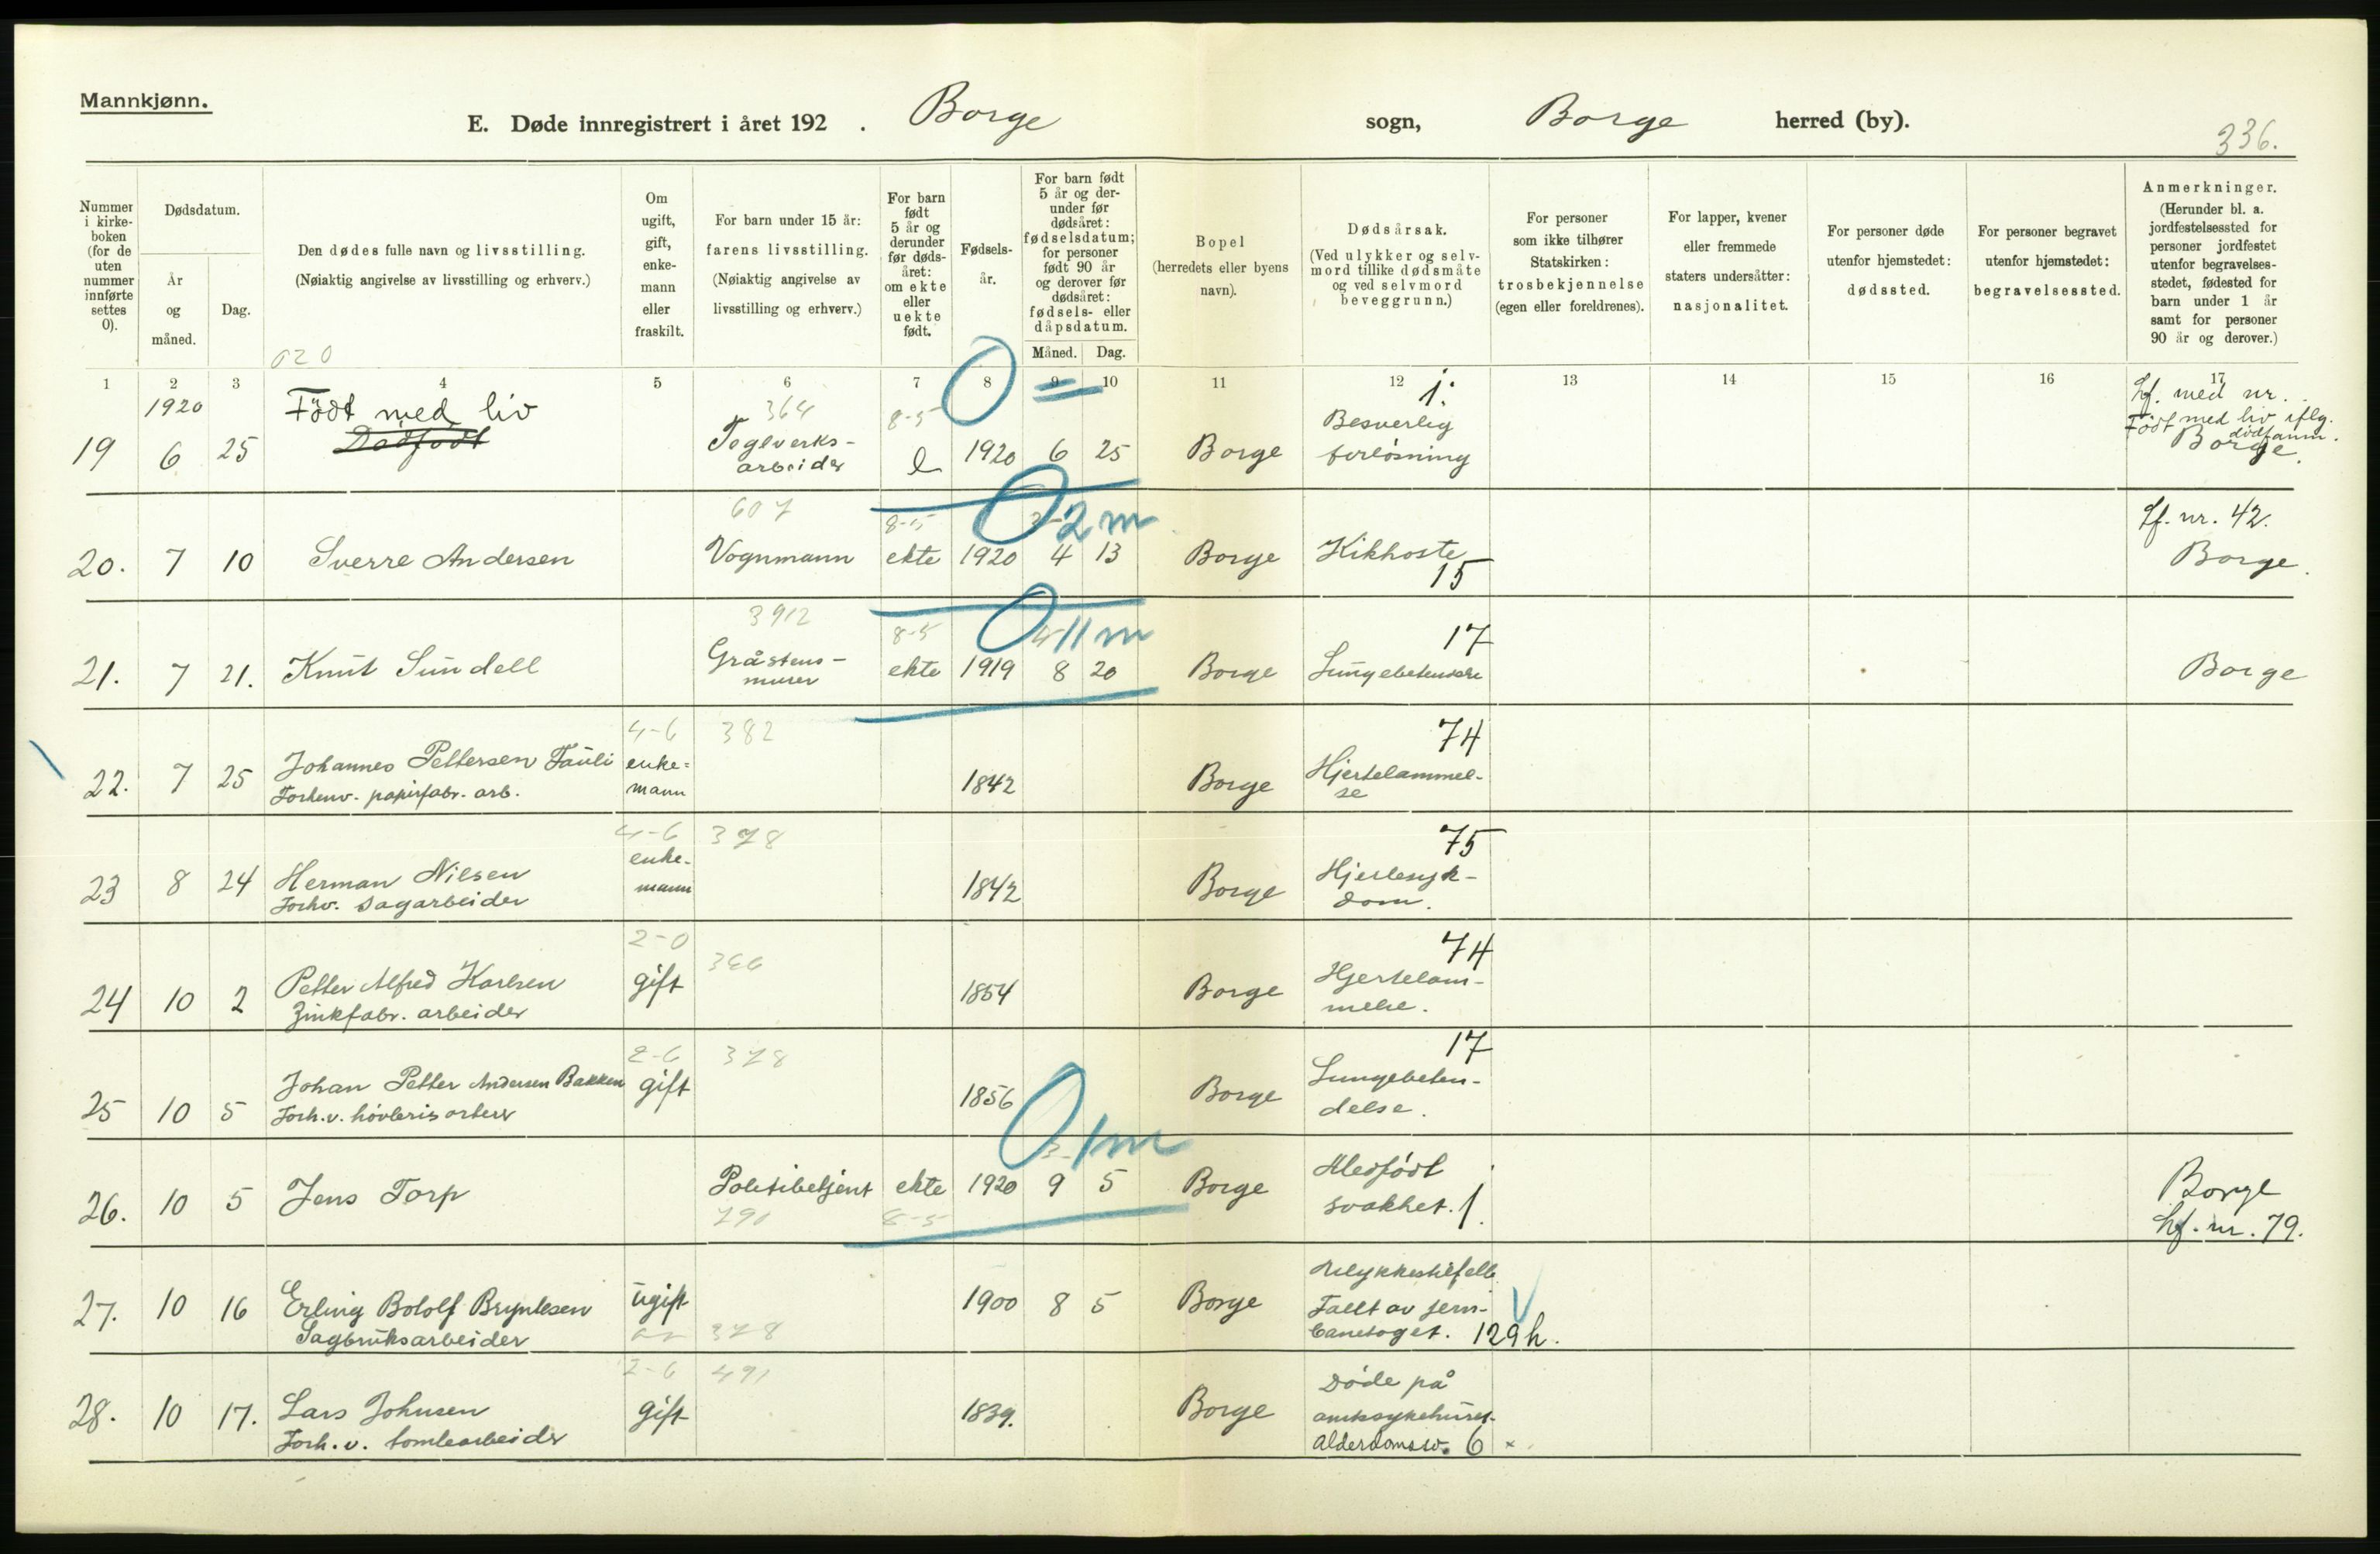 Mannkjønn.
E. Døde innregistrert i året 192 . Borge sogn, Borge herred (by).
336.
Nummer i kirke- boken (for de uten nummer innførte settes 0).
Dødsdatum.
År og måned.
Dag.
Den dødes fulle navn og livsstilling.
(Nøiaktig angivelse av livsstilling og erhverv.)
020
Om ugift, gift, enke- mann eller fraskilt.
For barn under 15 år:
farens livsstilling.
(Nøiaktig angivelse av
livsstilling og erhverv.)
For barn født 5 år og derunder før døds- året: om ekte eller uekte født.
Fødsels- år.
For barn født 5 år og der- under før dødsåret: fødselsdatum; for personer født 90 år og derover før dødsåret: fødsels- eller dåpsdatum.
Måned. Dag.
Bopel
(herredets eller byens
navn).
Dødsårsak.
(Ved ulykker og selv-
mord tillike dødsmåte
og ved selvmord
beveggrunn.)
For personer
som ikke tilhører
Statskirken:
trosbekjennelse
(egen eller foreldrenes).
For lapper, kvener
eller fremmede
staters undersåtter:
nasjonalitet.
For personer døde
utenfor hjemstedet:
dødssted.
For personer begravet
utenfor hjemstedet:
begravelsessted.
Anmerkninger.
(Herunder bl. a.
jordfestelsessted for
personer jordfestet
utenfor begravelses-
stedet, fødested for
barn under 1 år
samt for personer
90 år og derover.)
1 2 3 4 5 6 7 8 9 10 11 12 13 14 15 16 17
1920 Født med liv 364 8-5 0 = 1. Lf. med nr. .
Dødfødt Teglverks- Besverlig Født med liv iflg.
19 6 25 arbeider e 1920 6 25 Borge forløsning dødfanm.
Borge.
607 8-5 0 2 m Lf. nr. 42.
20. 7 10 Sverre Andersen Vognmann ekte 1920 4 13 Borge Kikhoste 15 Borge.
3912 8-5 0 11 m 17
21. 7 21. Knut Sundell Gråstens- murer ekte 1919 8 20 Borge Lungebetendelse Borge
4-6 382 74
22. 7 25 Johannes Pettersen Tauli enke- mann 1842 Borge Hjertelammel- se
Forhenv. papirfabr. arb.
4-6 378 75
23 8 24 Herman Nilsen enke- mann 1842 Borge Hjertesyk- dom.
Forhv. sagarbeider
2-0 366 74
24 10 2 Petter Alfred Karlsen gift 1854 Borge Hjertelam- melse.
Zinkfabr. arbeider
2-6 378 17
25 10 5 Johan Petter Andersen Bakken gift 1856 Borge Lungebeten- delse.
Forh.v. høvleriarbeid
0 1 m
26. 10 5 Jens Torp Politibetjent ekte 1920 9 5 Borge Medfødt svakhet. 1. Borge
8-5 Lf. nr. 79.
27. 10 16 Erling Botolf Bryntesen ugift 1900 8 5 Borge Ulykkestilfelle
Sagbruksarbeider 378 Fallt av jern-
banetoget. 129 h.
2-6 491
28. 10 17. Lars Johnsen gift 1839. Borge Døde på
Forh. v. tomtearbeider amtssykehuset.
Alderdomssv. 6 ×